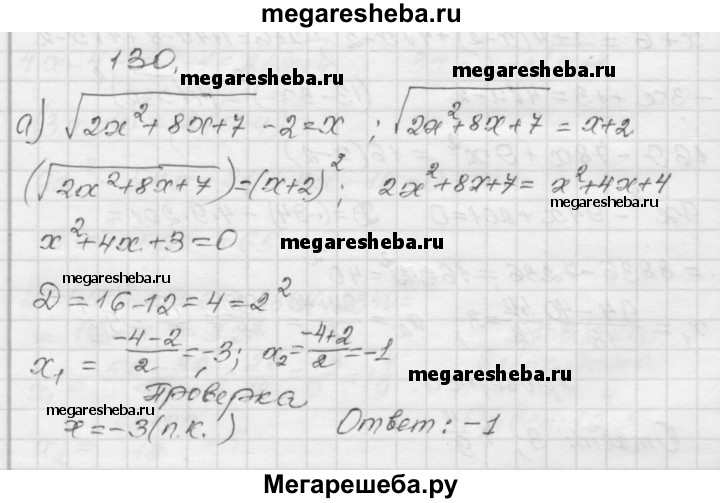 megaresheba.ru
130.
megaresheba.ru megaresheba.ru
а) √(2x²+8x+7) - 2 = x ; √(2x²+8x+7) = x+2
(√(2x²+8x+7)) = (x+2)² ; 2x²+8x+7 = x²+4x+4
megaresheba.ru
x²+4x+3=0 megaresheba.ru
megaresheba.ru
D = 16-12 = 4 = 2²
x₁ = (-4-2)/2 = -3; x₂ = (-4+2)/2 = -1
megaresheba.ru
Проверка
megaresheba.ru
x = -3 (п.к. ) Ответ: -1
Мегарешеба.ру